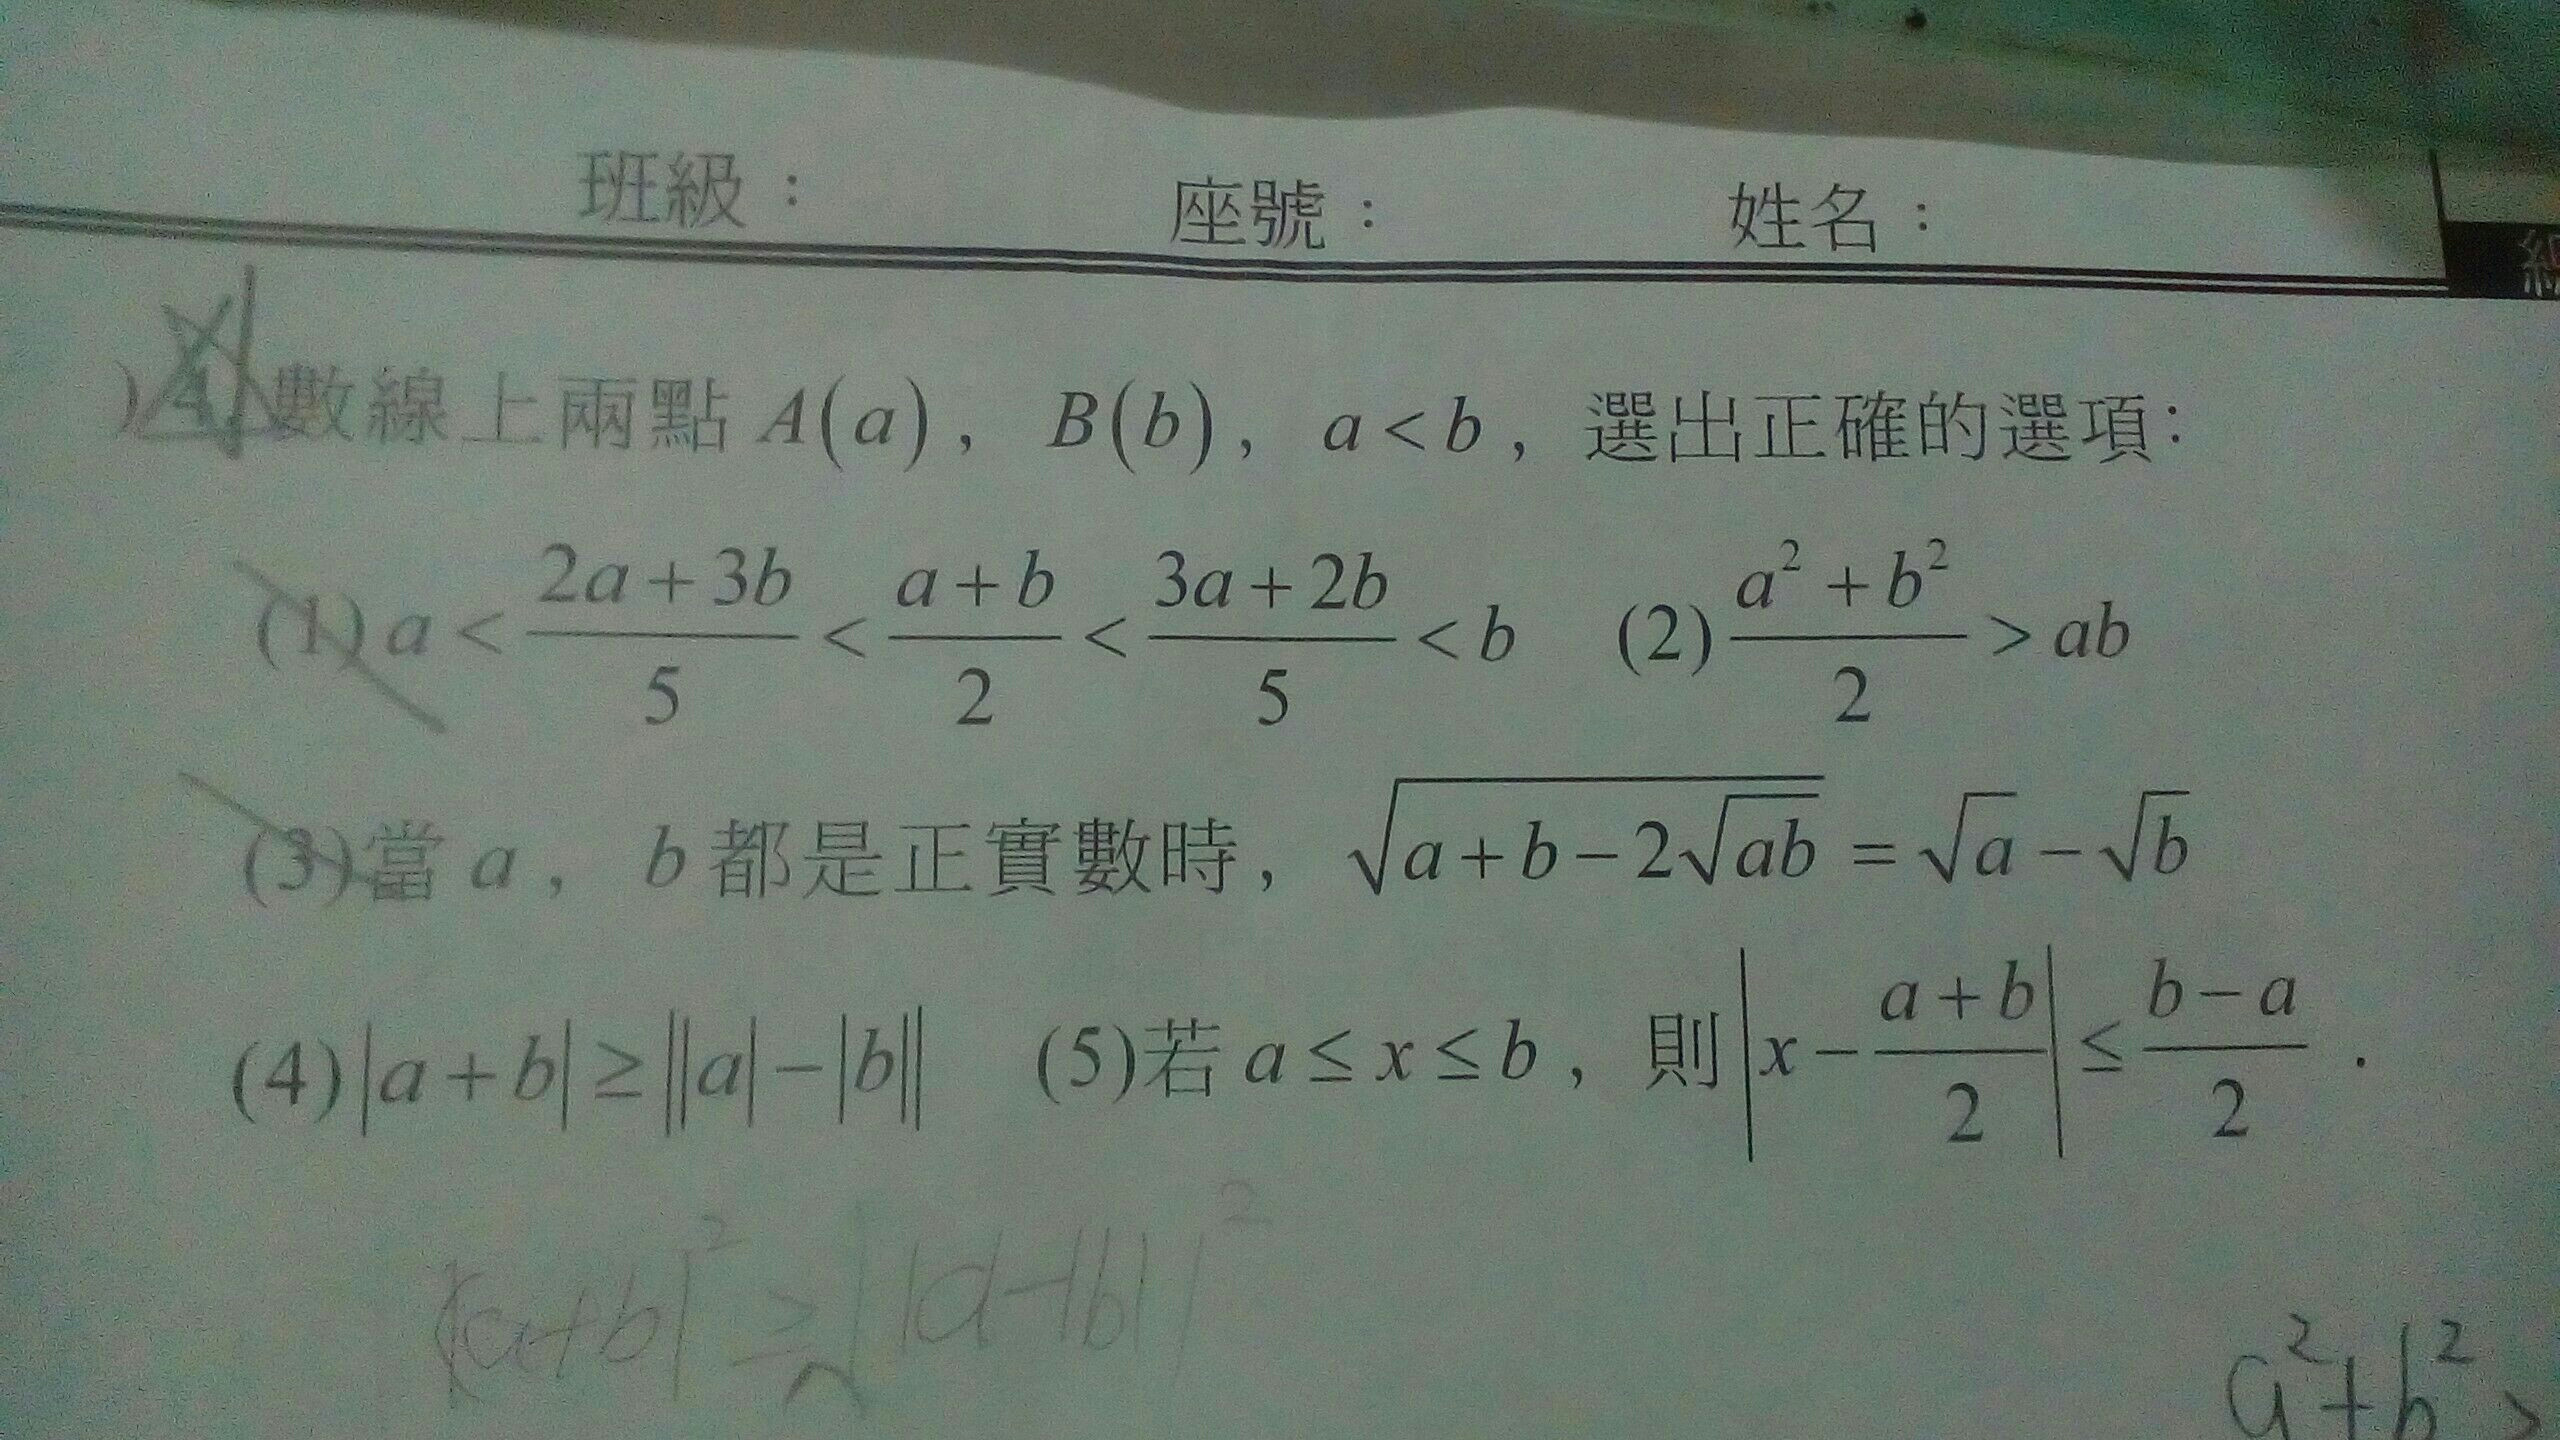 班級： 座號： 姓名：
)4. 數線上兩點 A(a)，B(b)，a<b，選出正確的選項：
(1) a < (2a+3b)/5 < (a+b)/2 < (3a+2b)/5 < b (2) (a²+b²)/2 > ab
(3)當 a，b 都是正實數時，√(a+b−2√(ab)) = √a − √b
(4) |a+b| ≥ ||a|−|b|| (5)若 a ≤ x ≤ b，則 |x − (a+b)/2| ≤ (b−a)/2．
|a+b|² ≥ ||a|-|b||²
a²+b² >